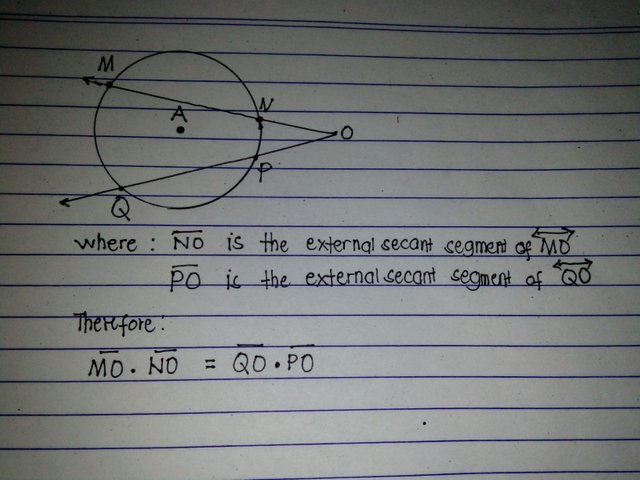 M
N
A
O
P
Q
where : N̅O̅ is the external secant segment of M͡O
P̅O̅ is the external secant segment of Q͡O
Therefore:
M̅O̅ . N̅O̅ = Q̅O̅ . P̅O̅